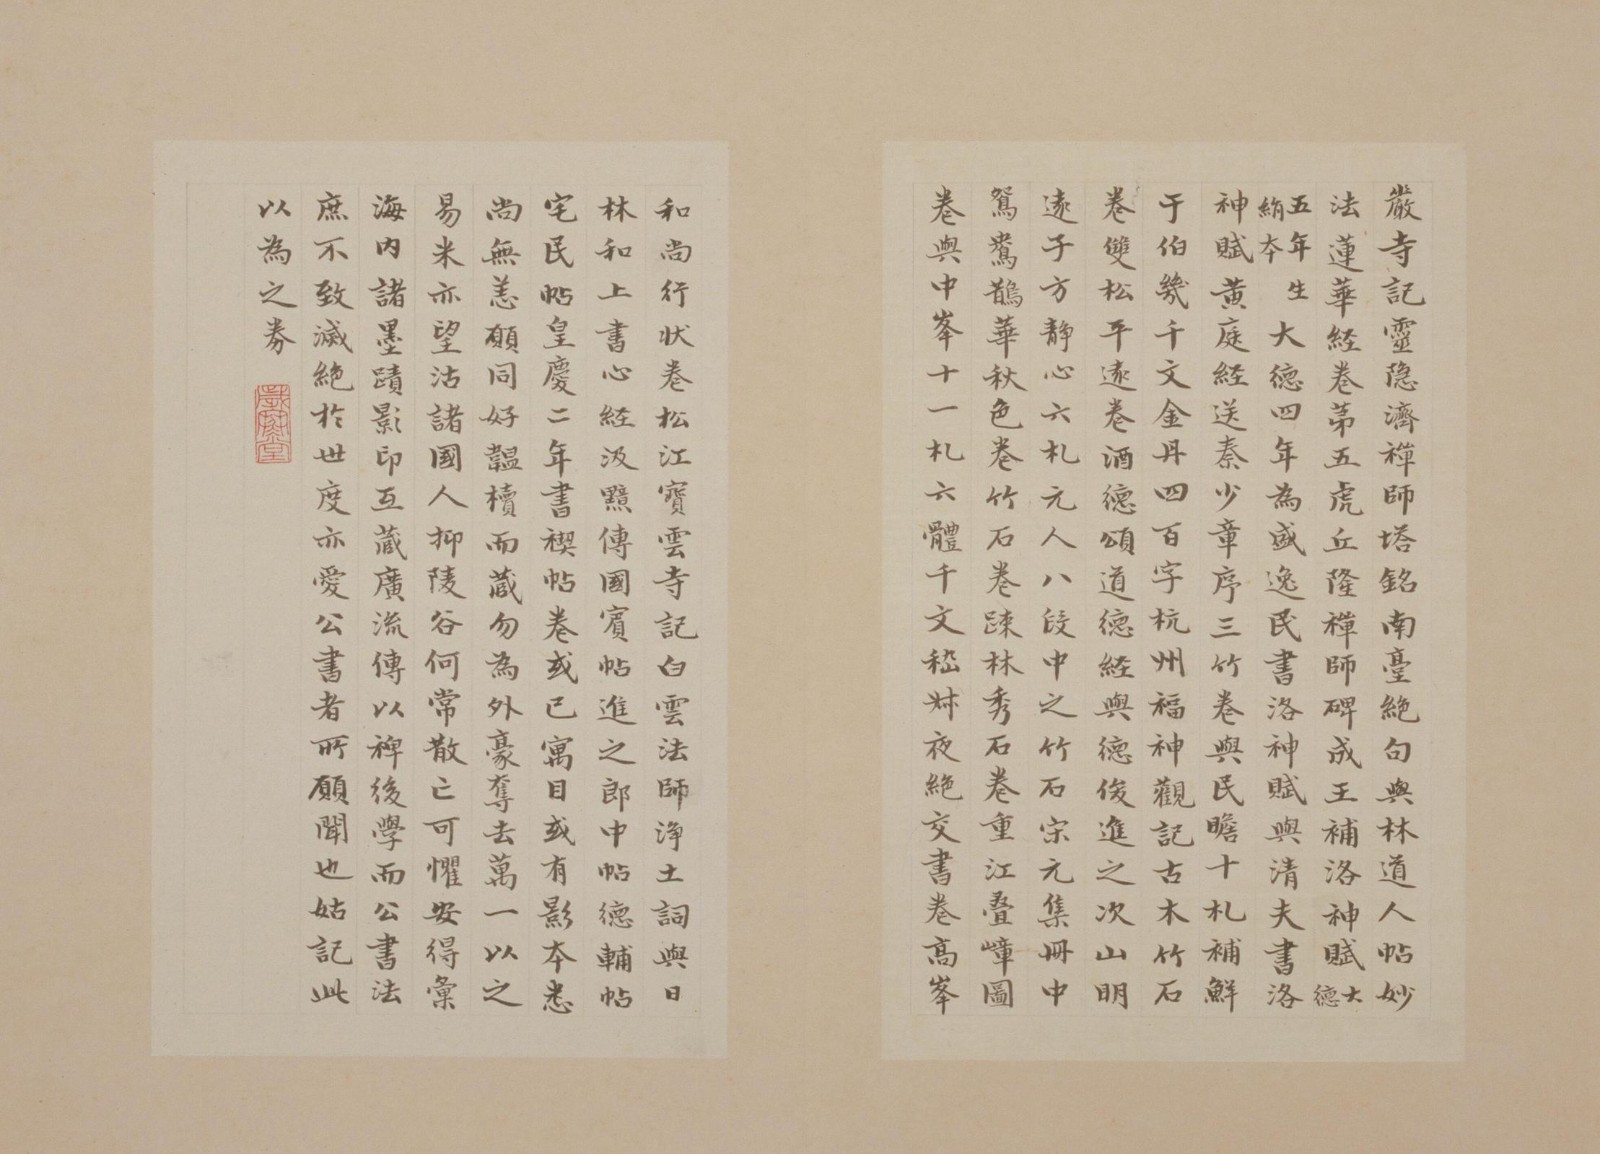 巖寺記靈隐濟禪師塔銘南臺絶句與林道人帖妙
法蓮華経卷苐五虎丘隆禪師碑成王補洛神賦大德
五年生絹本大德四年為盛逸民書洛神賦與清夫書洛
神賦黄庭経送秦少章序三竹卷與民瞻十札補鮮
于伯幾千文金丹四百字杭州福神觀記古木竹石
卷雙松平遠卷酒德頌道德経與德俊進之次山明
遠子方静心六札元人八段中之竹石宋元集冊中
鴛鴦鵲華秋色卷竹石卷踈林秀石卷重江疊嶂圖
卷與中峯十一札六體千文嵇叔夜絶交書卷高峯
和尚行状卷松江寶雲寺記白雲法師淨土詞與日
林和上書心経汲黯傳國賓帖進之郎中帖德輔帖
宅民帖皇慶二年書禊帖卷或已寓目或有影本悉
尚無恙願同好韞櫝而蔵勿為外豪奪去萬一以之
易米亦望沽諸國人抑陵谷何常散亡可懼安得彙
海内諸墨蹟影印互蔵廣流傳以裨後學而公書法
庶不致滅絶於世度亦愛公書者所願聞也姑記此
以為之券